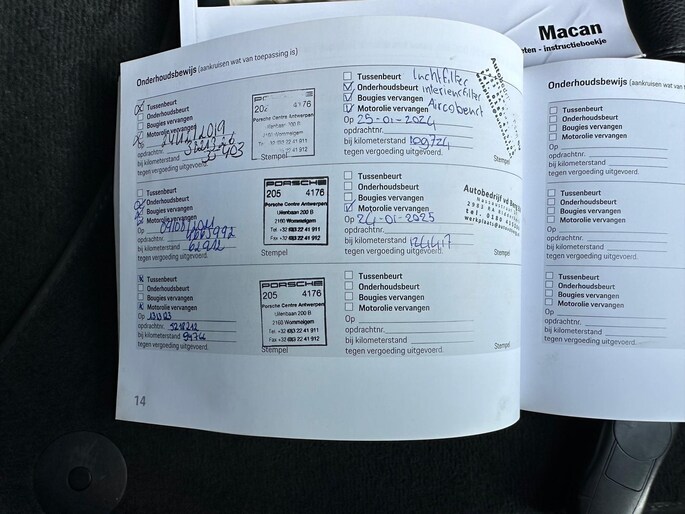 Macan
instructieboekje
Onderhoudsbewijs (aankruisen wat van toepassing is)
Tussenbeurt
Onderhoudsbeurt
Bougies vervangen
Motorolie vervangen
2019
opdrachtnr.
bij kilometerstand
tegen vergoeding uitgevoerd.
4176
Porsche Centre Antwerpen
Stempel
Tussenbeurt Luchtfilter
Onderhoudsbeurt interieurfilter
Bougies vervangen Aircobeurt
Motorolie vervangen
Op 25-01-2024
opdrachtnr.
bij kilometerstand 109724
tegen vergoeding uitgevoerd.
Stempel
Tussenbeurt
Onderhoudsbeurt
Bougies vervangen
Motorolie vervangen
Op
opdrachtnr.
bij kilometerstand
tegen vergoeding uitgevoerd.
PORSCHE
205 4176
Porsche Centre Antwerpen
Uilenbaan 200 B
2160 Wommelgem
Tel. +32 (0)3 22 41 911
Fax +32 (0)3 22 41 912
Stempel
Tussenbeurt
Onderhoudsbeurt
Bougies vervangen
Motorolie vervangen
Op 24-01-2025
opdrachtnr.
bij kilometerstand
tegen vergoeding uitgevoerd.
Autobedrijf vd
Stempel
Tussenbeurt
Onderhoudsbeurt
Bougies vervangen
Motorolie vervangen
Op
opdrachtnr.
bij kilometerstand
tegen vergoeding uitgevoerd.
PORSCHE
205 4176
Porsche Centre Antwerpen
Uilenbaan 200 B
2160 Wommelgem
Tel. +32 (0)3 22 41 911
Fax +32 (0)3 22 41 912
Stempel
Tussenbeurt
Onderhoudsbeurt
Bougies vervangen
Motorolie vervangen
Op
opdrachtnr.
bij kilometerstand
tegen vergoeding uitgevoerd.
Stempel
14
Onderhoudsbewijs (aankruisen wat van
Tussenbeurt
Onderhoudsbeurt
Bougies vervangen
Motorolie vervangen
Op
opdrachtnr.
bij kilometerstand
tegen vergoeding uitgevoerd.
Tussenbeurt
Onderhoudsbeurt
Bougies vervangen
Motorolie vervangen
Op
opdrachtnr.
bij kilometerstand
tegen vergoeding uitgevoerd.
Tussenbeurt
Onderhoudsbeurt
Bougies vervangen
Motorolie vervangen
Op
opdrachtnr.
bij kilometerstand
tegen vergoeding uitgevoerd.